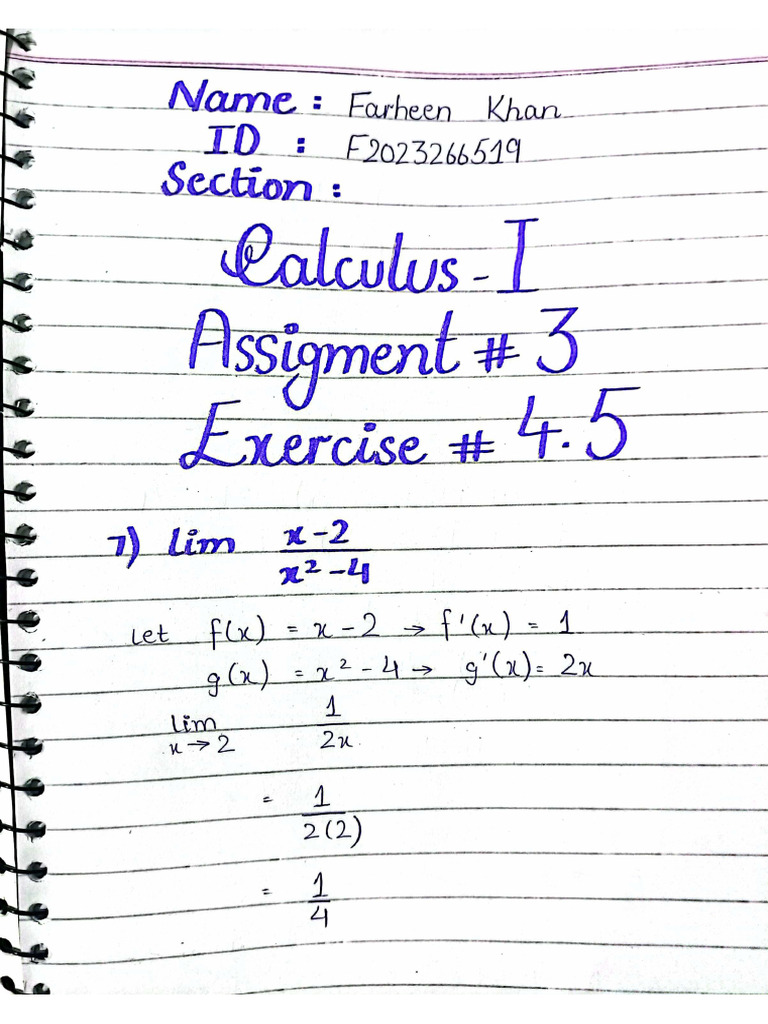 Name : Farheen Khan
ID : F2023266519
Section :
Calculus - I
Assigment # 3
Exercise # 4.5
7) lim x-2
x² -4
Let f(x) = x - 2 → f'(x) = 1
g(x) = x² - 4 → g'(x) = 2x
lim 1
x→2 2x
= 1
2(2)
= 1
4